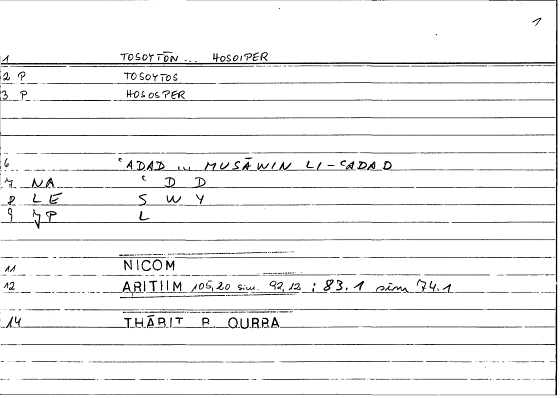 1
1 TOSOYTŌN ... HOSOIPER
2 P TOSOYTOS
3 P HOSOSPER
6 ʿADAD ... MUSĀWIN LI-ʿADAD
7 NA ʿ D D
8 LE S W Y
9 JP L
11 NICOM
12 ARITIIM 105,20 sim. 92,12 ; 83.1 sim 74.1
14 THĀBIT B QURRA